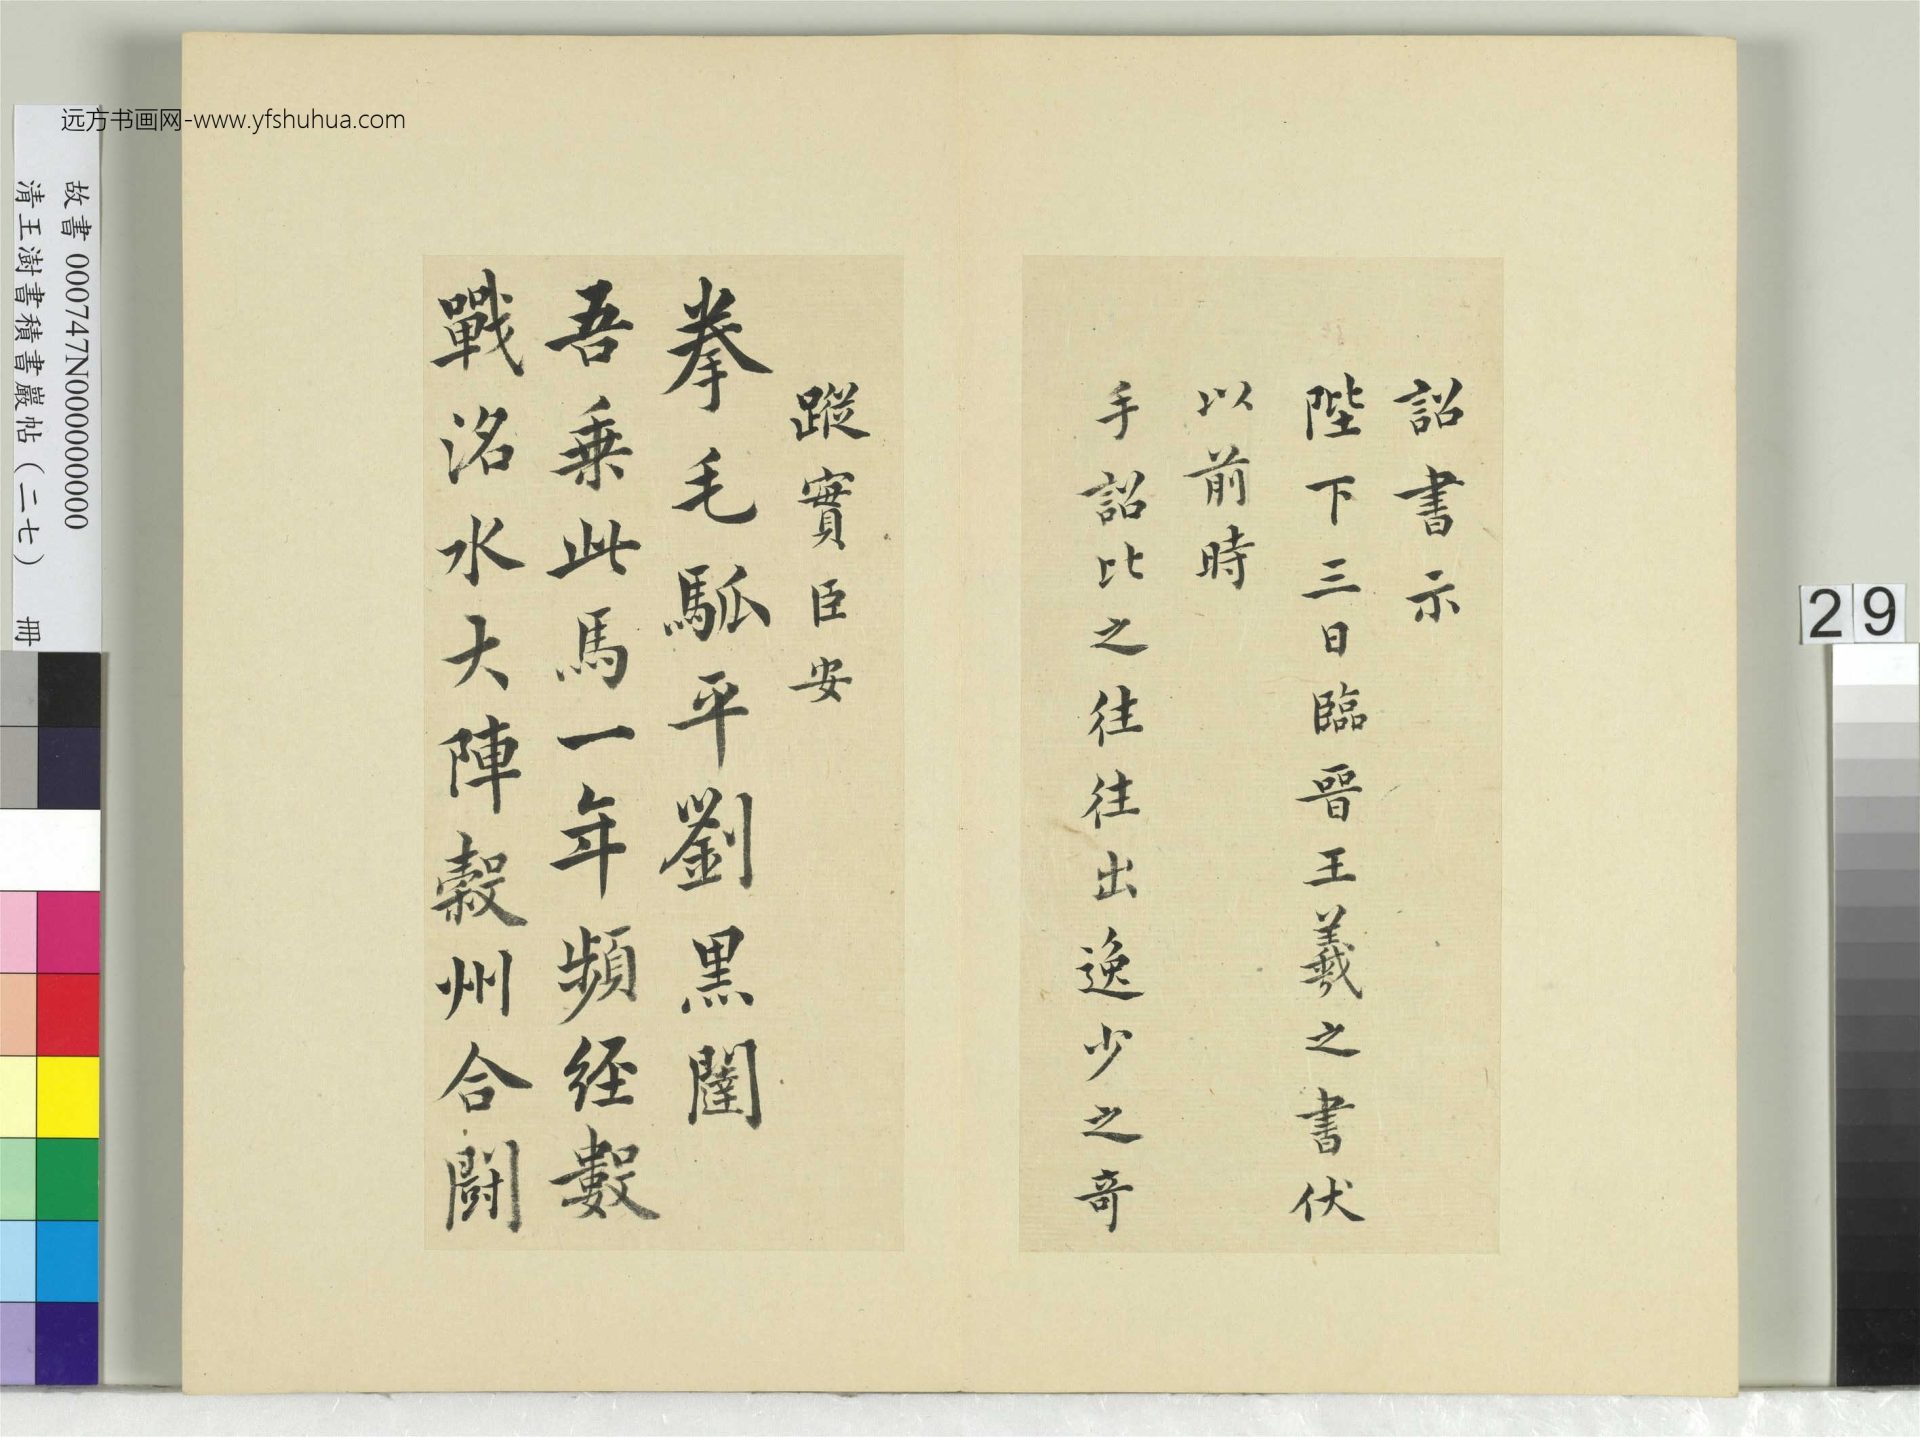 远方书画网-www.yfshuhua.com
故書 000747N000000000
清王澍書積書巖帖(二七) 冊
29
詔書示
陛下三日臨晉王羲之書伏
以前時
手詔比之往往出逸少之奇
蹤實臣安
拳毛䯄平劉黑闥
吾乗此馬一年頻経數
戰洺水大陣榖州合闘